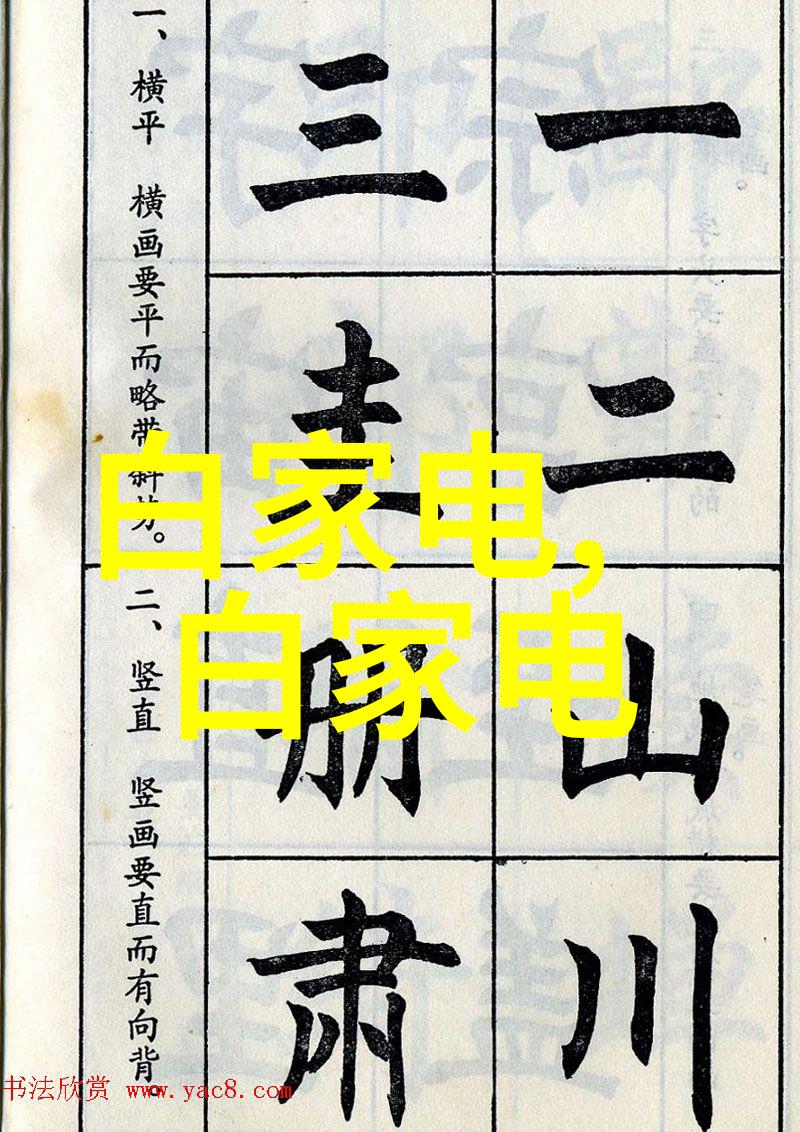 一
二
山
川
三
册
肃
一、横平 横画要平而略带斜势。
二、竖直 竖画要直而有向背。
白家电,
白家电
书法欣赏 www.yac8.com